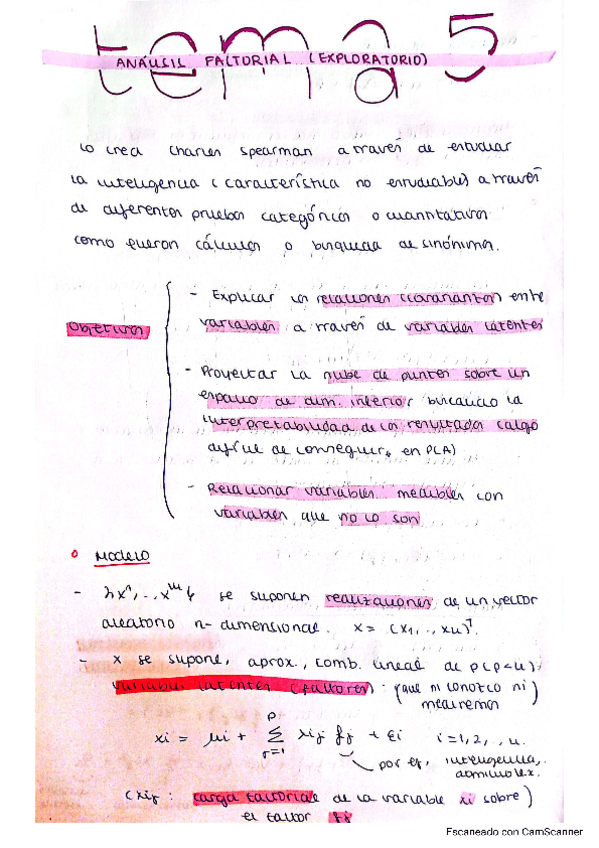 tema 5
ANÁLISIS FACTORIAL (EXPLORATORIO)
Lo crea Charles Spearman a través de estudiar
la inteligencia (característica no estudiable) a través
de diferentes pruebas categóricas o cuantitativas
como fueron cálculos o búsqueda de sinónimos.
Objetivos
- Explicar las relaciones (covarianzas) entre
variables a través de variables latentes
- Proyectar la nube de puntos sobre un
espacio de dim. inferior buscando la
interpretabilidad de los resultados (algo
difícil de conseguir en PCA)
- Relacionar variables medibles con
variables que no lo son
Modelo
- {x¹,..x se suponen realizaciones de un vector
aleatorio n-dimensional. x = (x₁,..,xn)ᵀ.
- x se supone, aprox., comb. lineal de p (p<n)
variables latentes (factores): (que ni conozco ni
medimos)
xi = μi + Σ λij fj + εi i=1,2,..,n.
p
j=1
por ej, inteligencia,
(λij: carga factorial de la variable xi sobre)
el factor fj
Escaneado con CamScanner